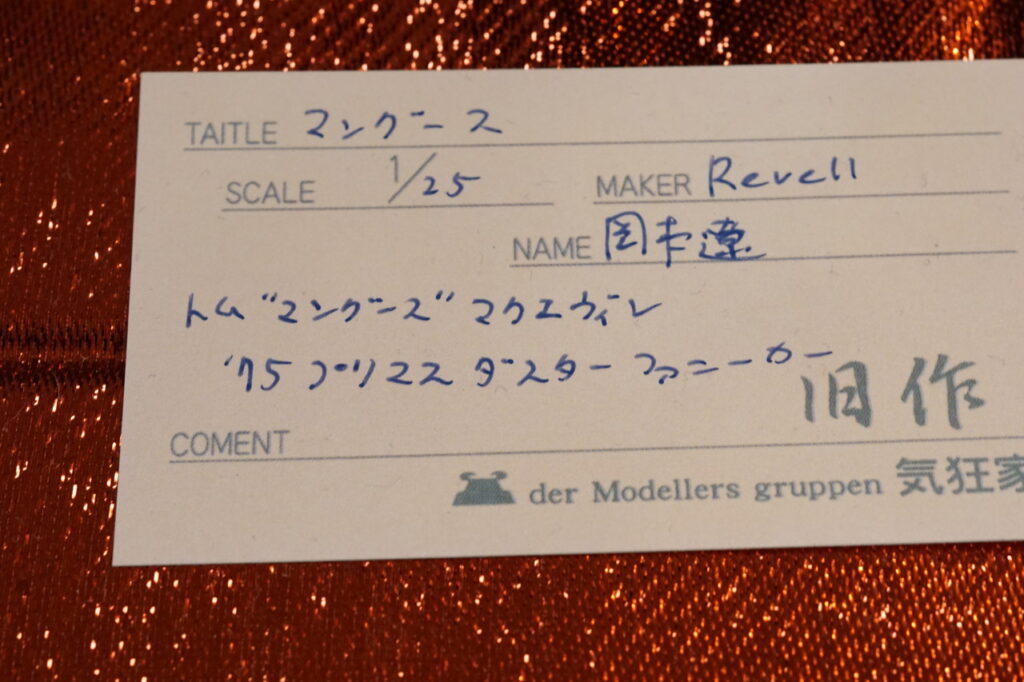 TAITLE マングース
SCALE 1/25
MAKER Revell
NAME 岡本遼
トム"マングース"マクエヴィン
'75プリマス ダスター ファニーカー
旧作
COMENT
der Modellers gruppen 気狂家